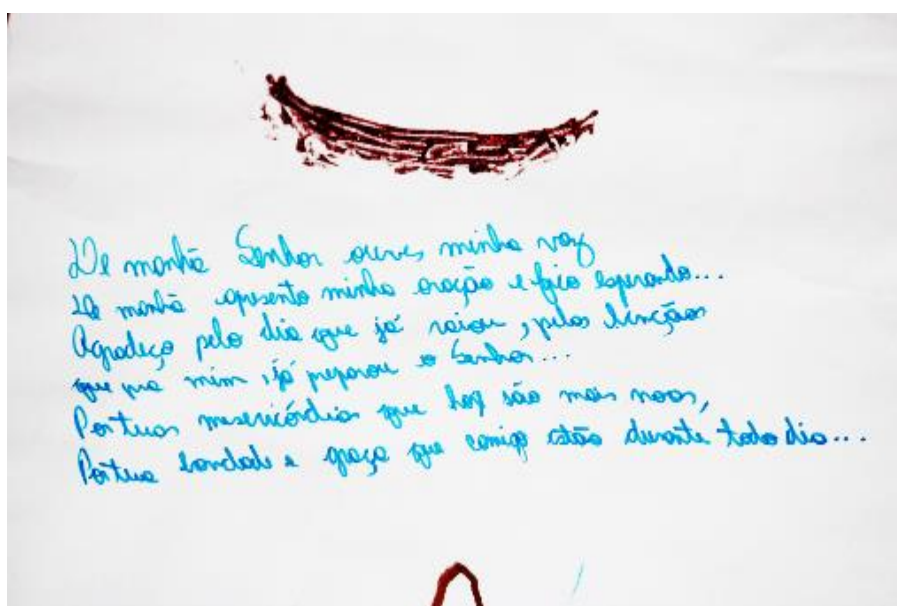 De manhã Senhor ouves minha voz
De manhã apresento minha oração e fico esperando...
Agradeço pelo dia que já raiou, pelas bençãos
que pra mim já preparou o Senhor...
Por tuas misericórdias que hoje são mais novas,
Por tua bondade e graça que comigo estão durante todo dia...